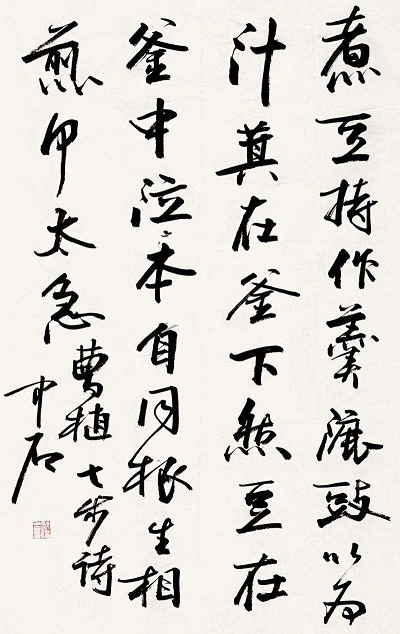 煮豆持作羹漉豉以为
汁萁在釜下然豆在
釜中泣本自同根生相
煎何太急
曹植七步诗
中石